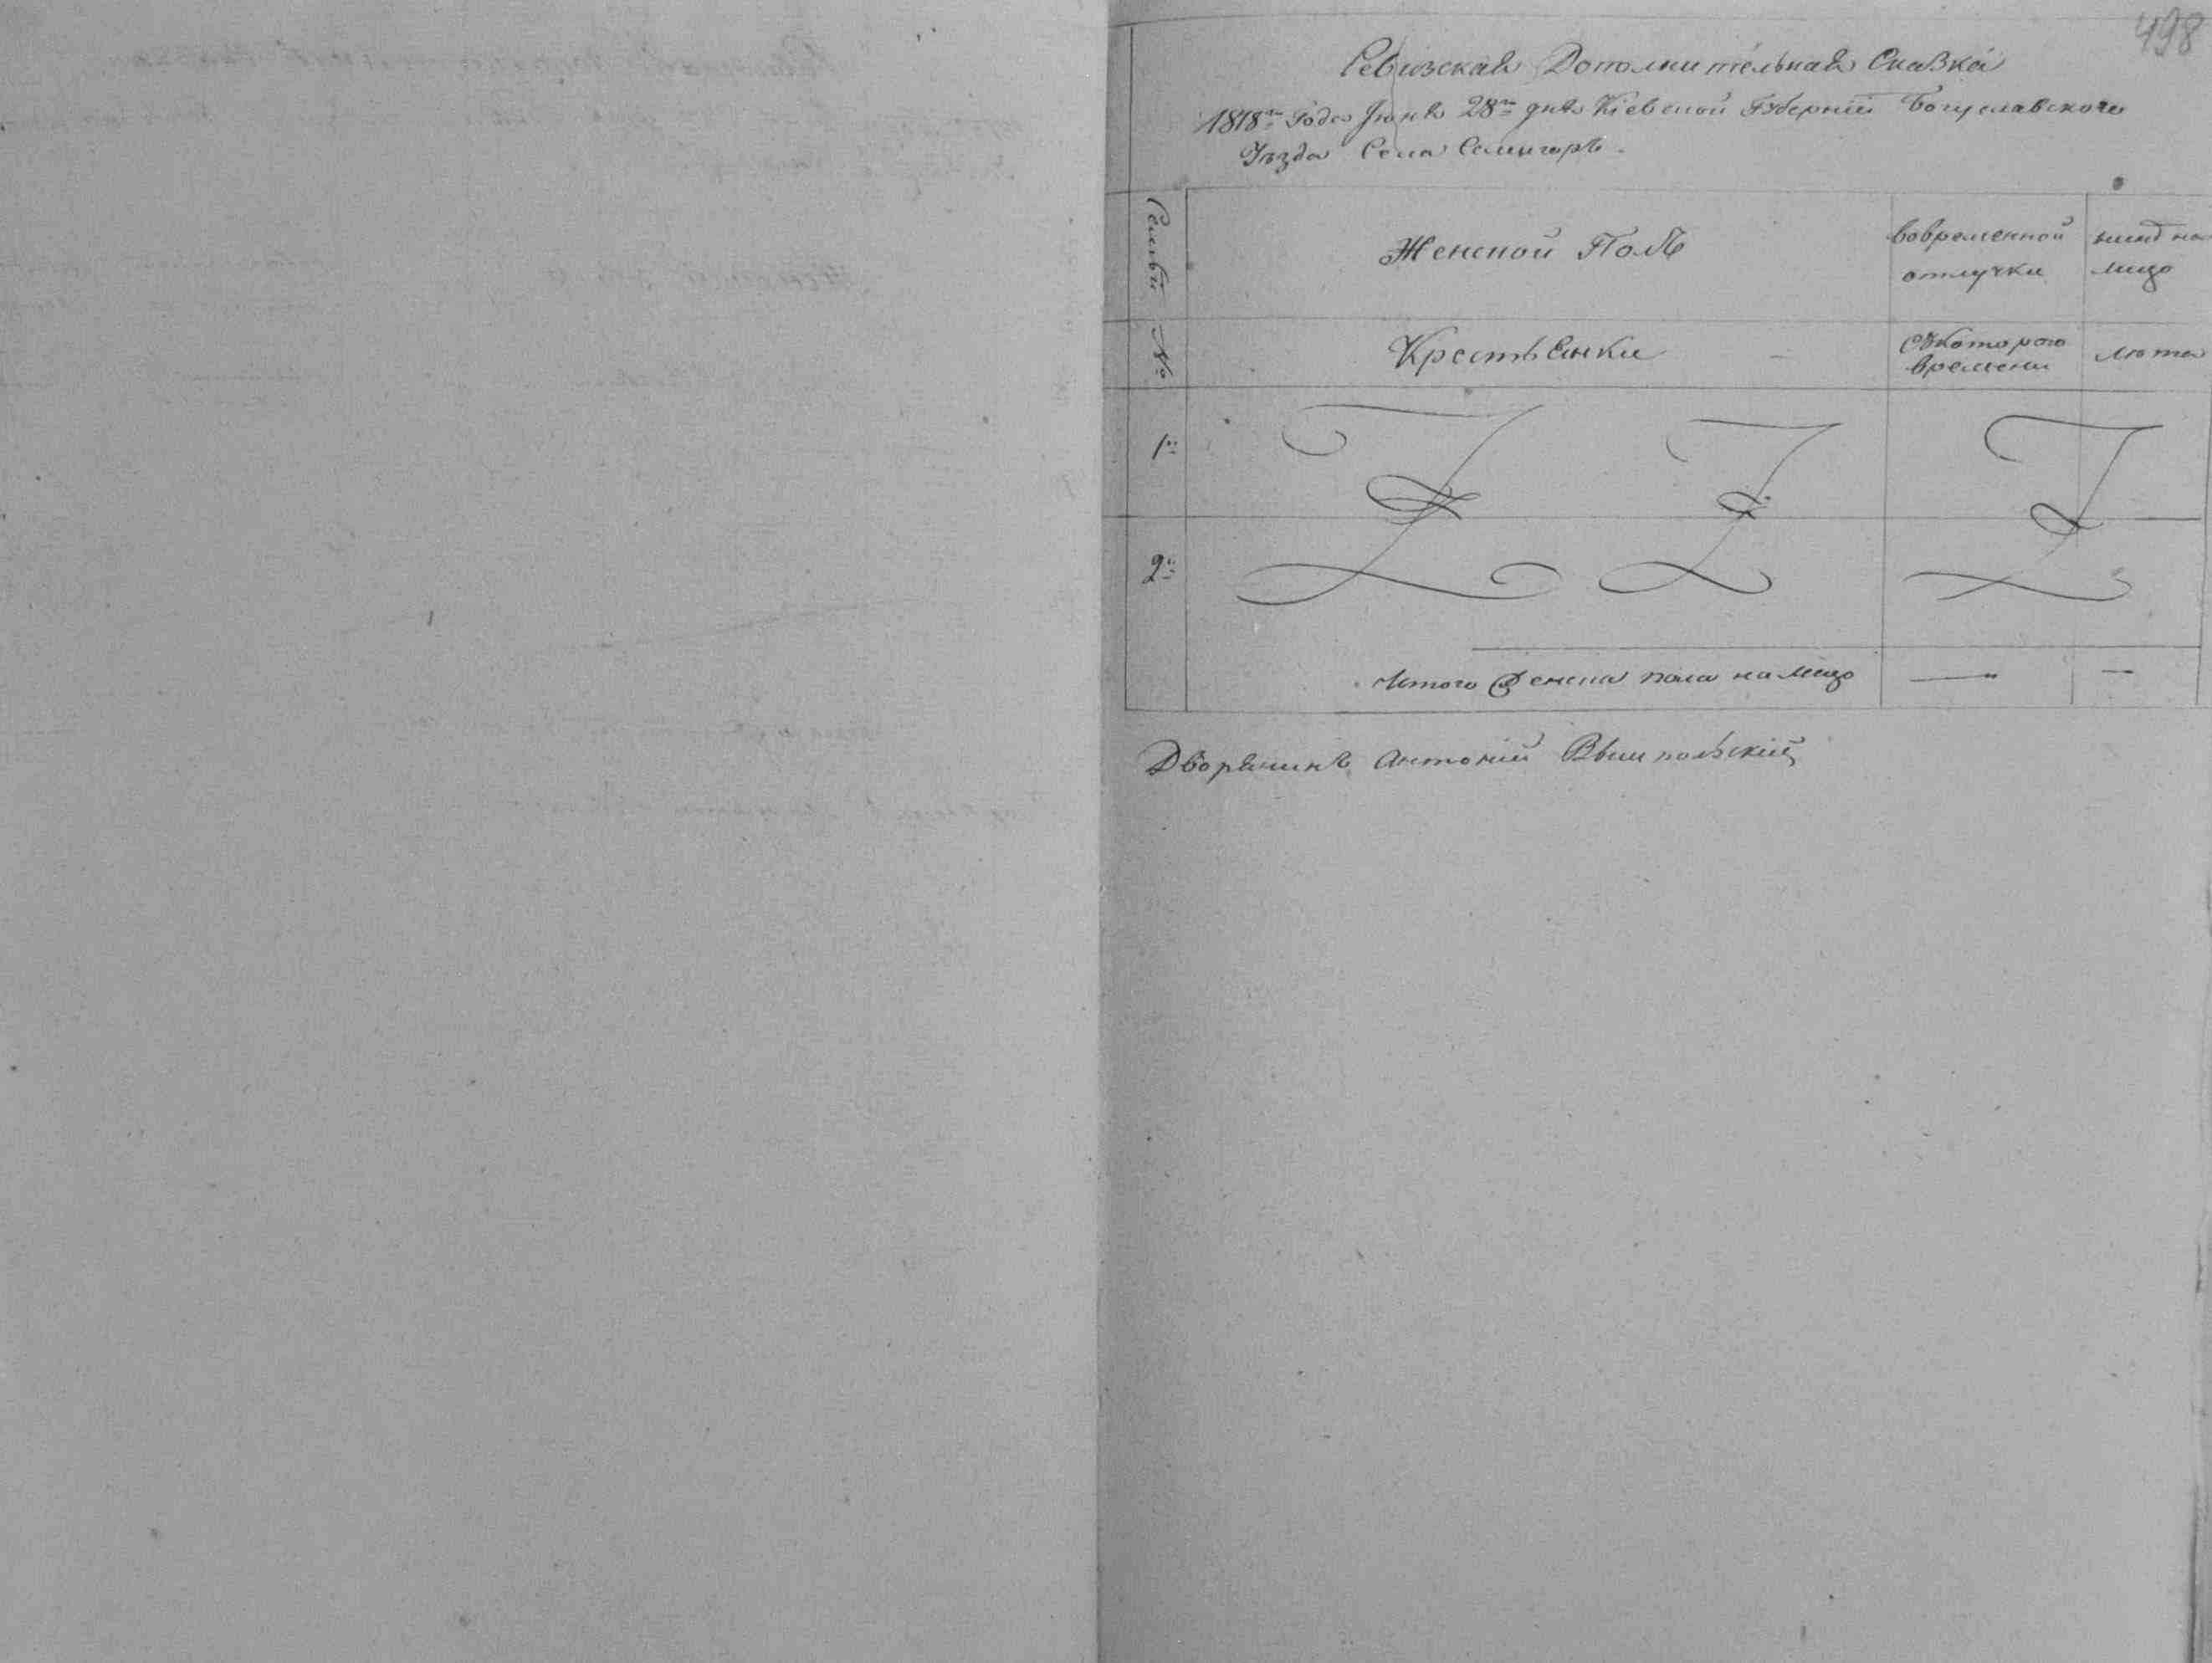 498
Ревизская Дополнительная Сказка
1818го Года Іюня 28го дня Кіевской Губерніи Богуславского
Уѣзда Села Селигоръ.
Семьи №
Женской Полъ
вовременной отлучки
нинѣ на лицо
Крестьянки
Съкоторого времени
лѣта
1й
2й
Итого Женска пола на лицо — —
Дворянинъ Антоній Вышпольскій